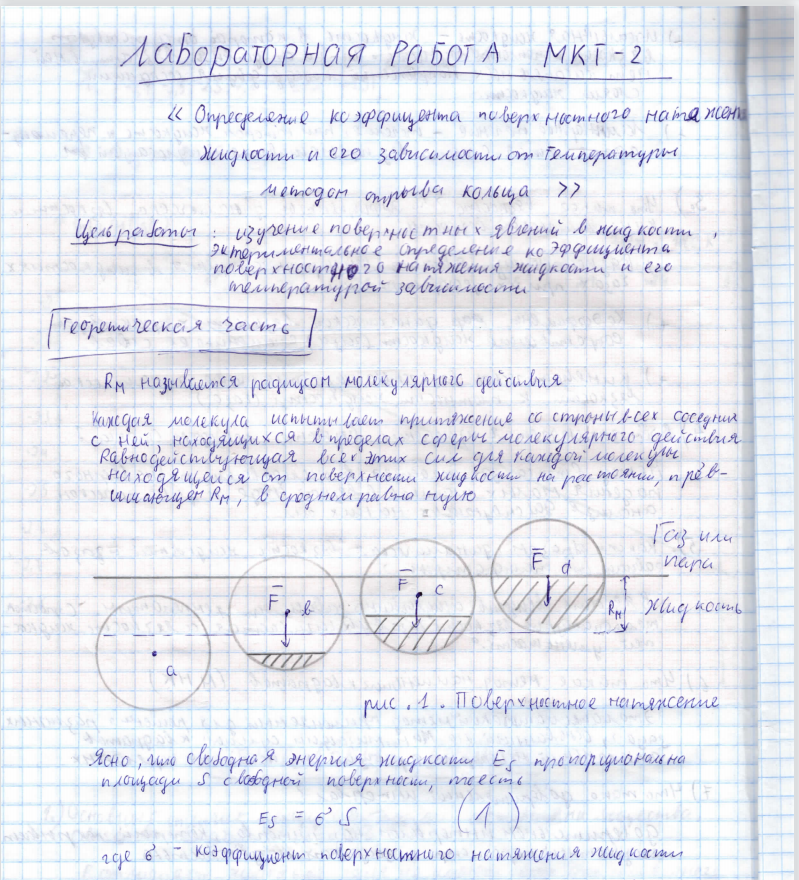 Лабораторная работа МКТ-2
« Определение коэффицента поверхностного натяжения
жидкости и его зависимости от температуры
методом отрыва кольца »
Цель работы : изучение поверхностных явлений в жидкости,
экспериментальное определение коэффициента
поверхностного натяжения жидкости и его
температурой зависимости
Теоретическая часть
Rм называется радиусом молекулярного действия
Каждая молекула испытывает притяжение со стороны всех соседних
с ней, находящихся в пределах сферы молекулярного действия
Равнодействующая всех этих сил для каждой молекулы
находящейся от поверхности жидкости на растоянии, прев-
ышающем Rм, в среднем равна нулю
Газ или
пара
F b
F c
F d
Rм
Жидкость
a
рис. 1. Поверхностное натяжение
Ясно, что свободная энергия жидкости Es пропорциональна
площади S свободной поверхности, тоесть
Es = σ S (1)
где σ - коэффициент поверхностного натяжения жидкости